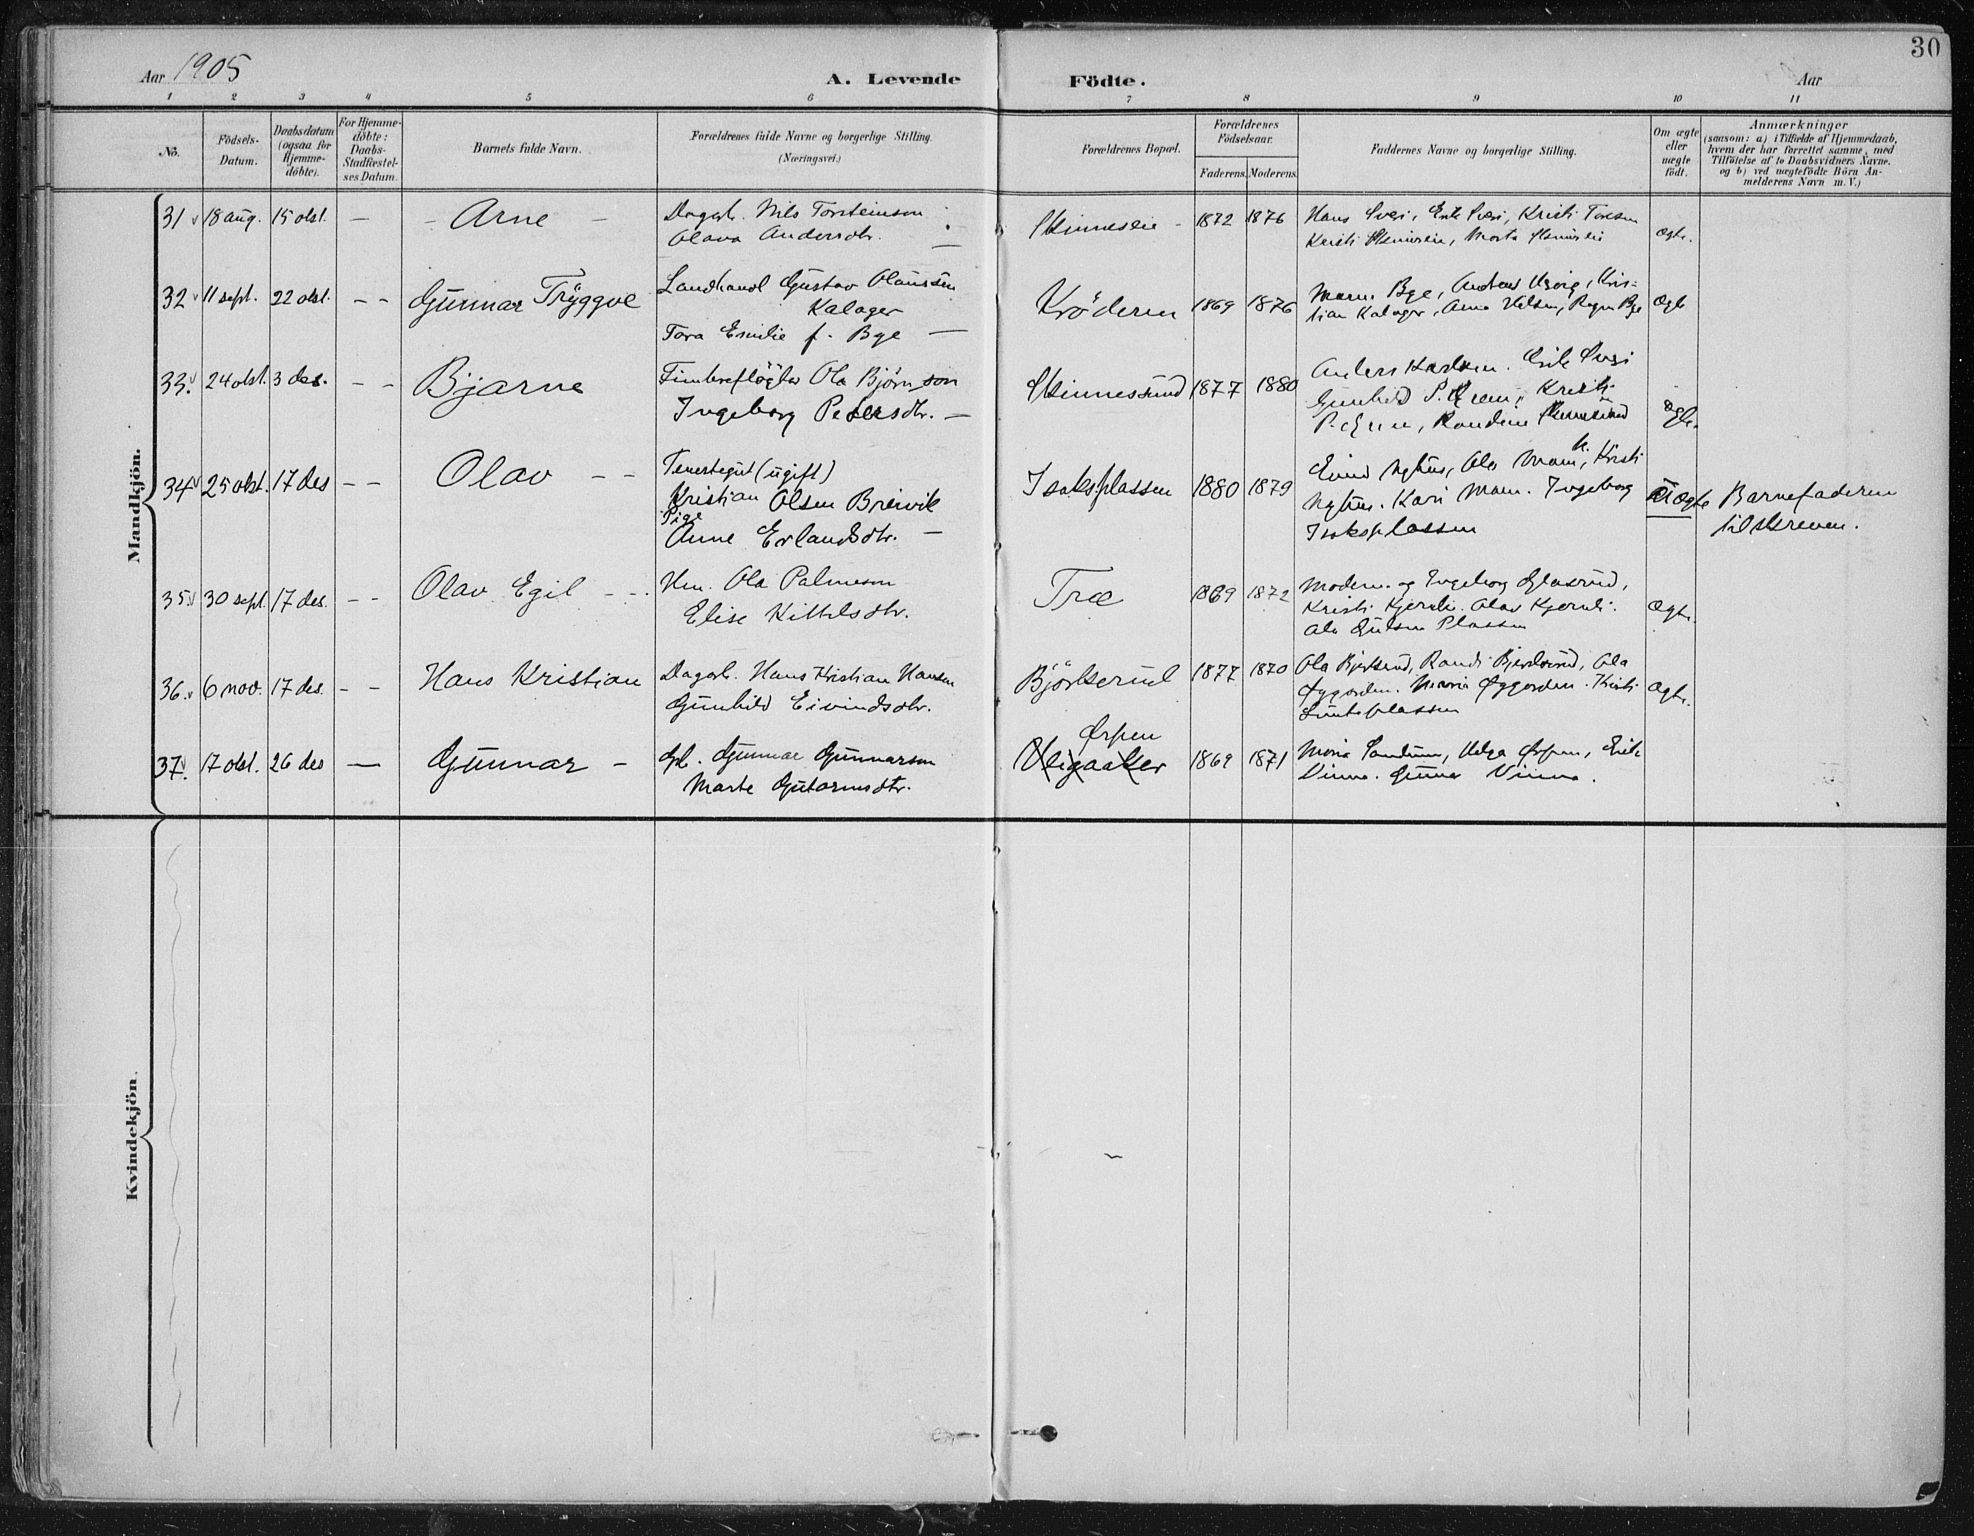 30
Aar 1905
A. Levende Födte.
Aar
1 2 3 4 5 6 7 8 9 10 11
No.
Födsels-Datum.
Daabsdatum (ogsaa for Hjemme-döbte).
For Hjemme-döbte: Daabs-Stadfæstel-ses Datum.
Barnets fulde Navn.
Forældrenes fulde Navne og borgerlige Stilling.
(Næringsvei.)
Forældrenes Bopæl.
Forældrenes Födselsaar.
Faderens. Moderens.
Faddernes Navne og borgerlige Stilling.
Om ægte eller uægte födt.
Anmærkninger
(saasom: a) i Tilfælde af Hjemmedaab,
hvem der har forrettet samme, med
Tilföielse af to Daabsvidners Navne.
og b) ved uægtefödte Börn An-
melderens Navn m. V.)
Mandkjön.
31 18 aug. 15 okt. — - Arne - Dagarb. Nils Torsteinson
Olava Andersdtr. —
1872 1876 Hans Sveri, Erik Sveri, Kristi
Kristi Marta
ægte.
32 11 sept. 22 okt. - - Gunnar Tryggve Landhandl Gustav Olaussen
Kalager
Tora Emilie f. Bye —
Kröderen 1869 1876 Bye, Kris-
tian Kalager, Anna Bye
ægte
33. 24 okt. 3 des. - - Bjarne Ola Björnson
Ingeborg Pedersdtr. —
Skinnessund 1877 1880 Anders Karlsen. Erik Sveri
Gunhild Kristi
ægte.
34 25 okt. 17 des - - Olav - - Tenestegut (ugift)
Kristian Olsen Breivik
Pige
Anne Erlandsdtr. —
Isaksplassen 1880 1879 Eivind Nyhus, Ola Moen, Kristi
Nyhus. Kari Moen. Ingeborg
Isaksplassen
Uægte Barnefaderen
tilskreven.
35 30 sept. 17 des. - - Olav Egil - - Hm. Ola Palmeson
Elise Kittelsdtr.
Træ 1869 1872 Modern. og Ingeborg Glesrud,
Kristi Kjernli. Olav Kjernli.
Ola Plassen
ægte.
36. 6 nov. 17 des. - - Hans Kristian Dagarb. Hans Kristian Hansen
Gunhild Eivindsdtr.
Björkerud 1877 1870 Ola Bjerkerud, Randi Bjerkerud, Ola
Øygarden. Maria Øygarden. Kristi
ægte.
37. 17 okt. 26 des — Gunnar - Gbr. Gunnar Gunnarson
Marte Gutormsdtr.
Ørpen
1869 1871 Maria Helga Ørpen, Erik
Vinna. Gunnar Vinna.
Kvindekjön.